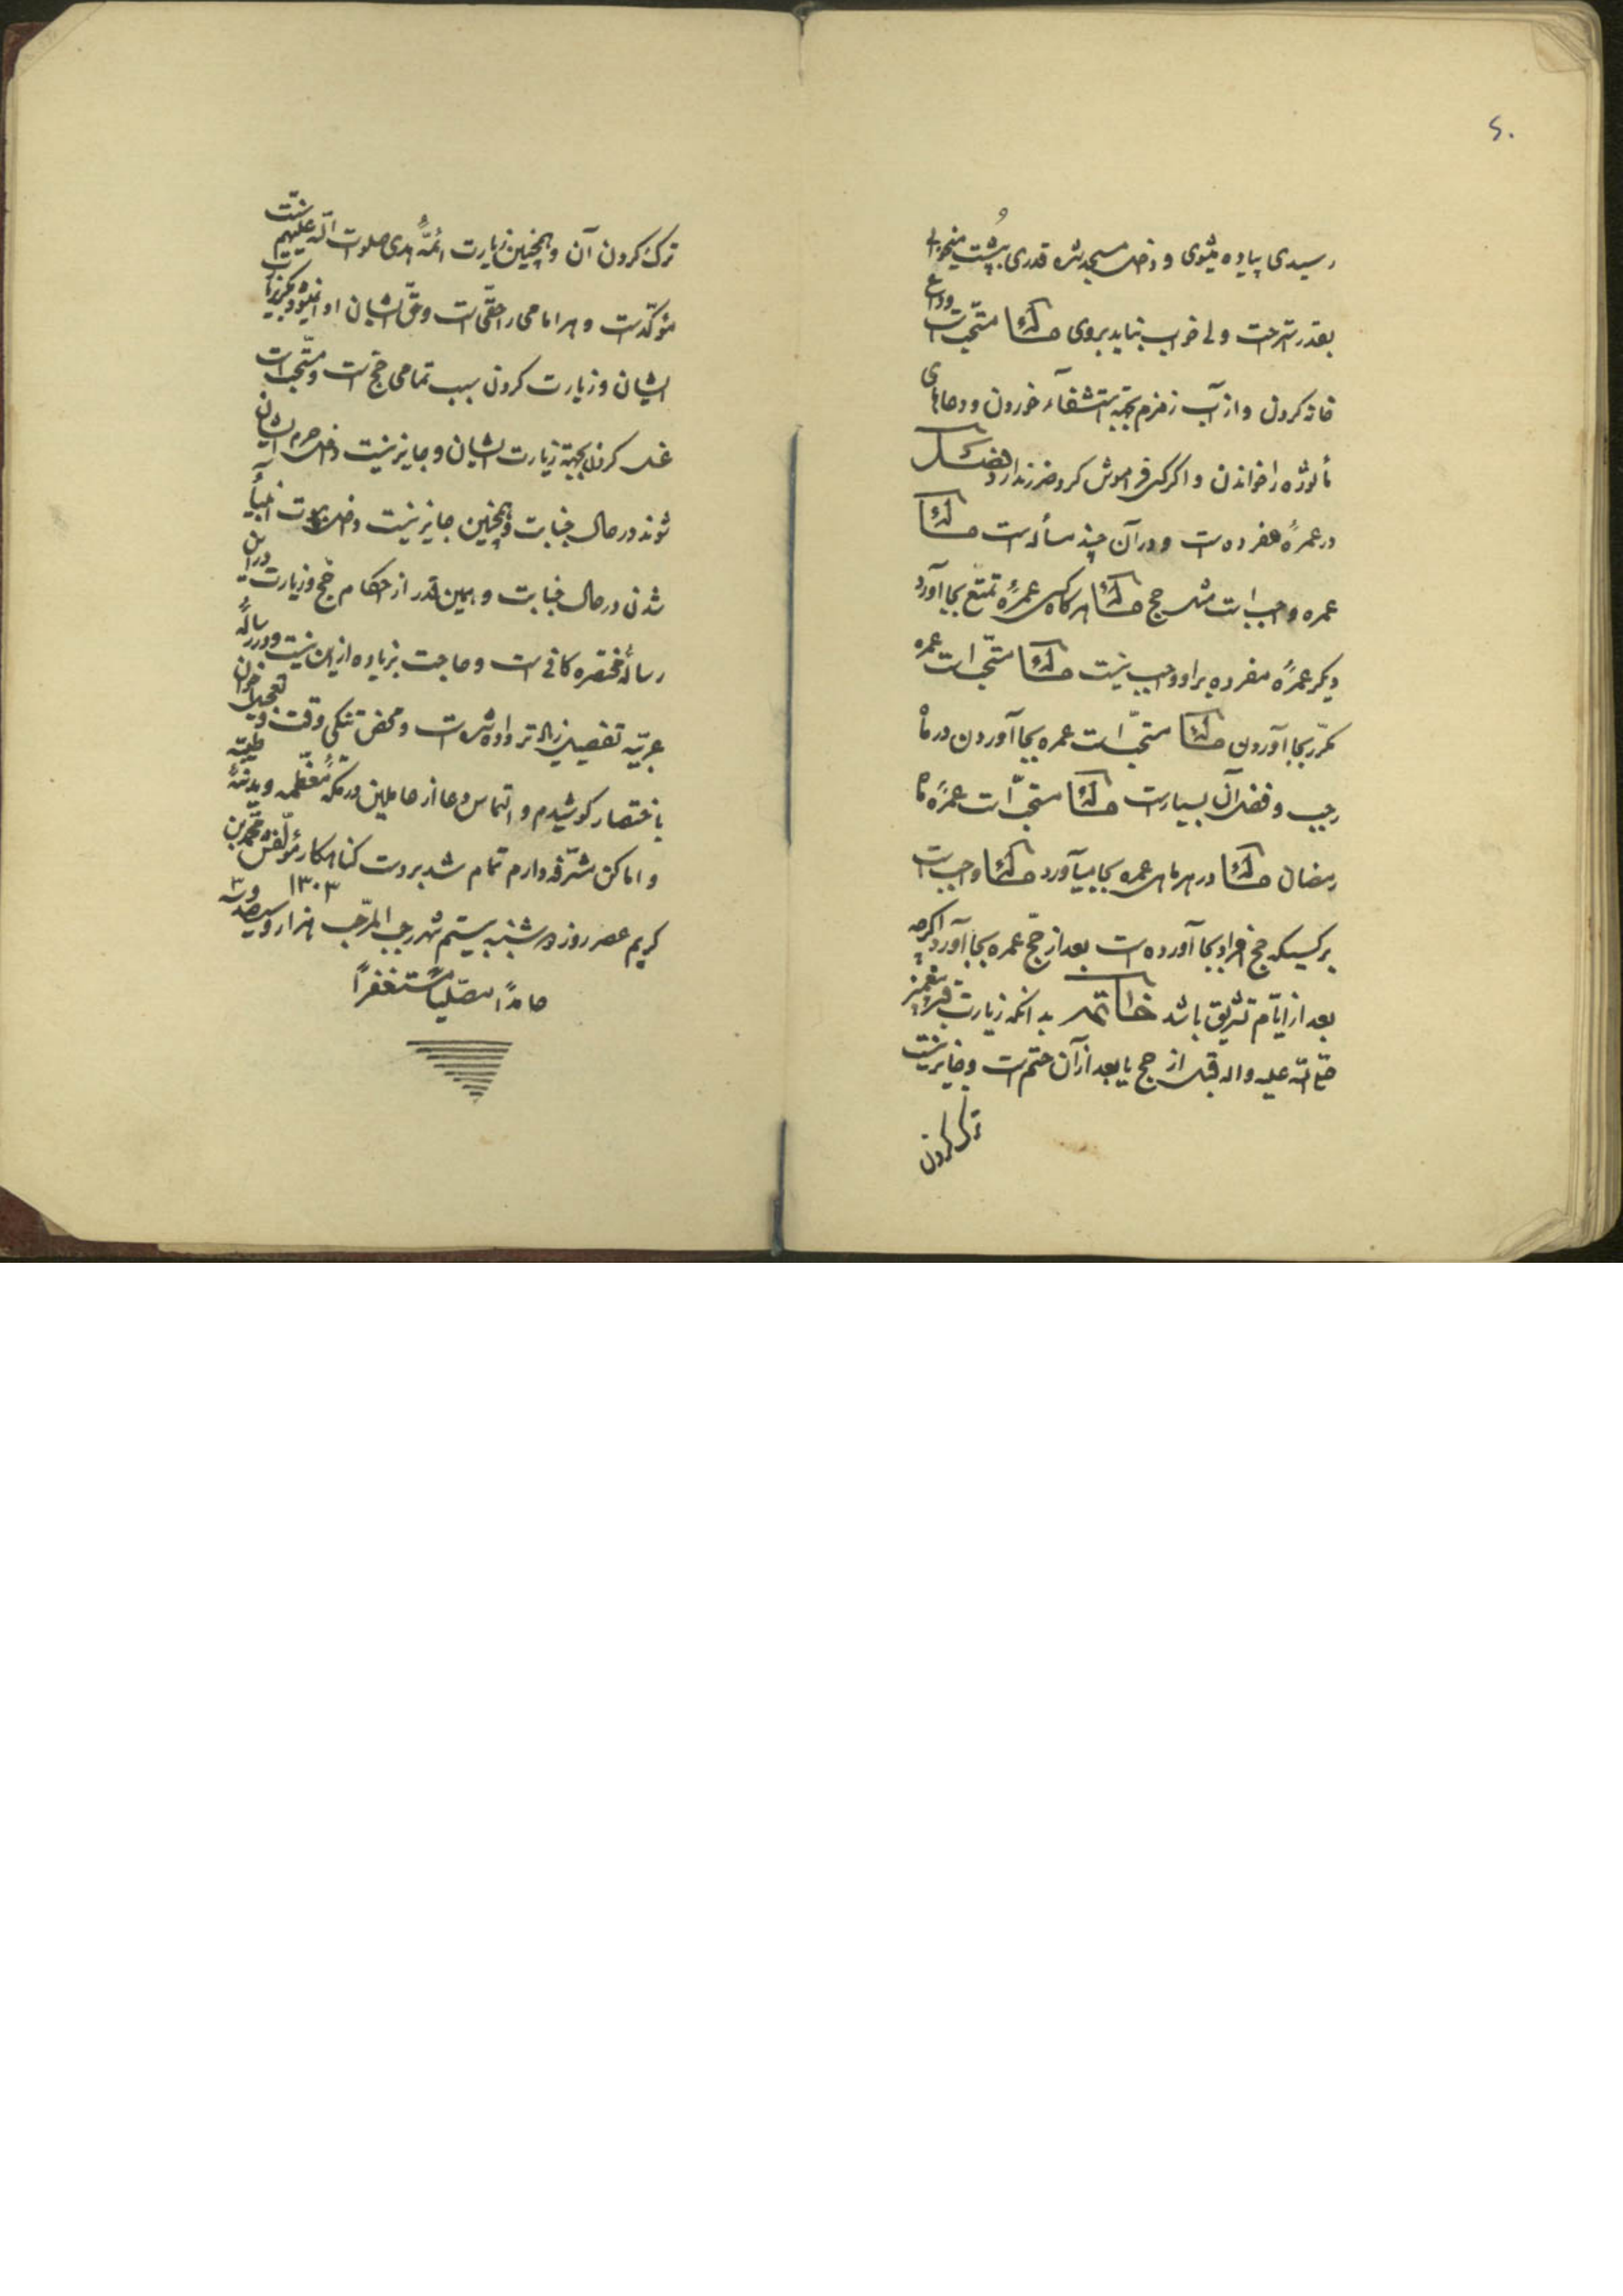 ۶۰
رسیدی پیاده میشوی و داخل مسجد شده قدری به پُشت میخوابی
بقدر استراحت ولی خواب نباید بروی مسئله مستحب است وداع
خانه کردن و از آب زمزم بجهة استشفاء خوردن و دعاهای
مأثوره را خواندن و اگر کسی فراموش کرد ضرر ندارد فصل
در عمرهٔ مفرده است و در آن چند مسأله است مسئله
عمره واجب است مثل حج مسئله هرگاه کسی عمرهٔ تمتّع بجا آورد
دیگر عمرهٔ مفرده بر او واجب نیست مسئله مستحّب است عمره
مکرّر بجا آوردن مسئله مستحّب است عمره بجا آوردن در ماه
رجب و فضل آن بسیار است مسئله مستحّب است عمرهٔ ماه
رمضان مسئله در هر ماهی عمره بجا میآورد مسئله واجب است
بر کسیکه حج افراد بجا آورده است بعد از حجّ عمره بجا آورد اگرچه
بعد از ایّام تشریق باشد خاتمه بدانکه زیارت قبر پیغمبر
صلّی الله علیه و اله قبل از حج یا بعد از آن حتم است و جایز نیست
ترک کردن
ترک کردن آن و همچنین زیارت ائمّهٔ هدی صلوات الله علیهم سنّت
مؤکّد است و هر امامی را حقّی است و حقّ ایشان ادا نمیشود مگر بزیارت
ایشان و زیارت کردن سبب تمامی حجّ است و مستّحب است
غسل کردن بجهة زیارت ایشان و جایز نیست داخل حرم ایشان
شوند در حال جنابت و همچنین جایز نیست داخل بیوت انبیاء
شدن در حال جنابت و همین قدر از احکام حجّ و زیارت در این
رسالهٔ مختصره کافی است و حاجت بزیاده از این نیست و در رسالهٔ
عربیّه تفصیلی زیادتر داده شده است و محض تنگی وقت و تعجیل اخوان
باختصار کوشیدم و التماس دعا از عاملین در مکّهٔ معّظمه و مدینهٔ طیّبه
و اماکن مشرّفه دارم تمام شد بر دست گناهکار مؤلّفش محّمد بن
کریم عصر روز دوشنبه بیستم شهر رجب المرّجب ۱۳۰۳ هزار و سیصد و سه
حامداً مصّلیاً مستغفراً